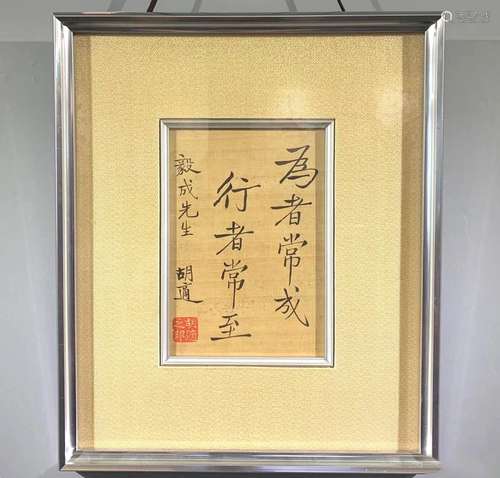 為者常成
行者常至
毅成先生
胡適
胡適之印